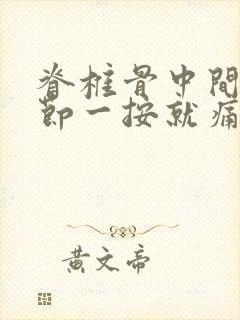 脊柱骨中間
節一按就痛
黄文帝